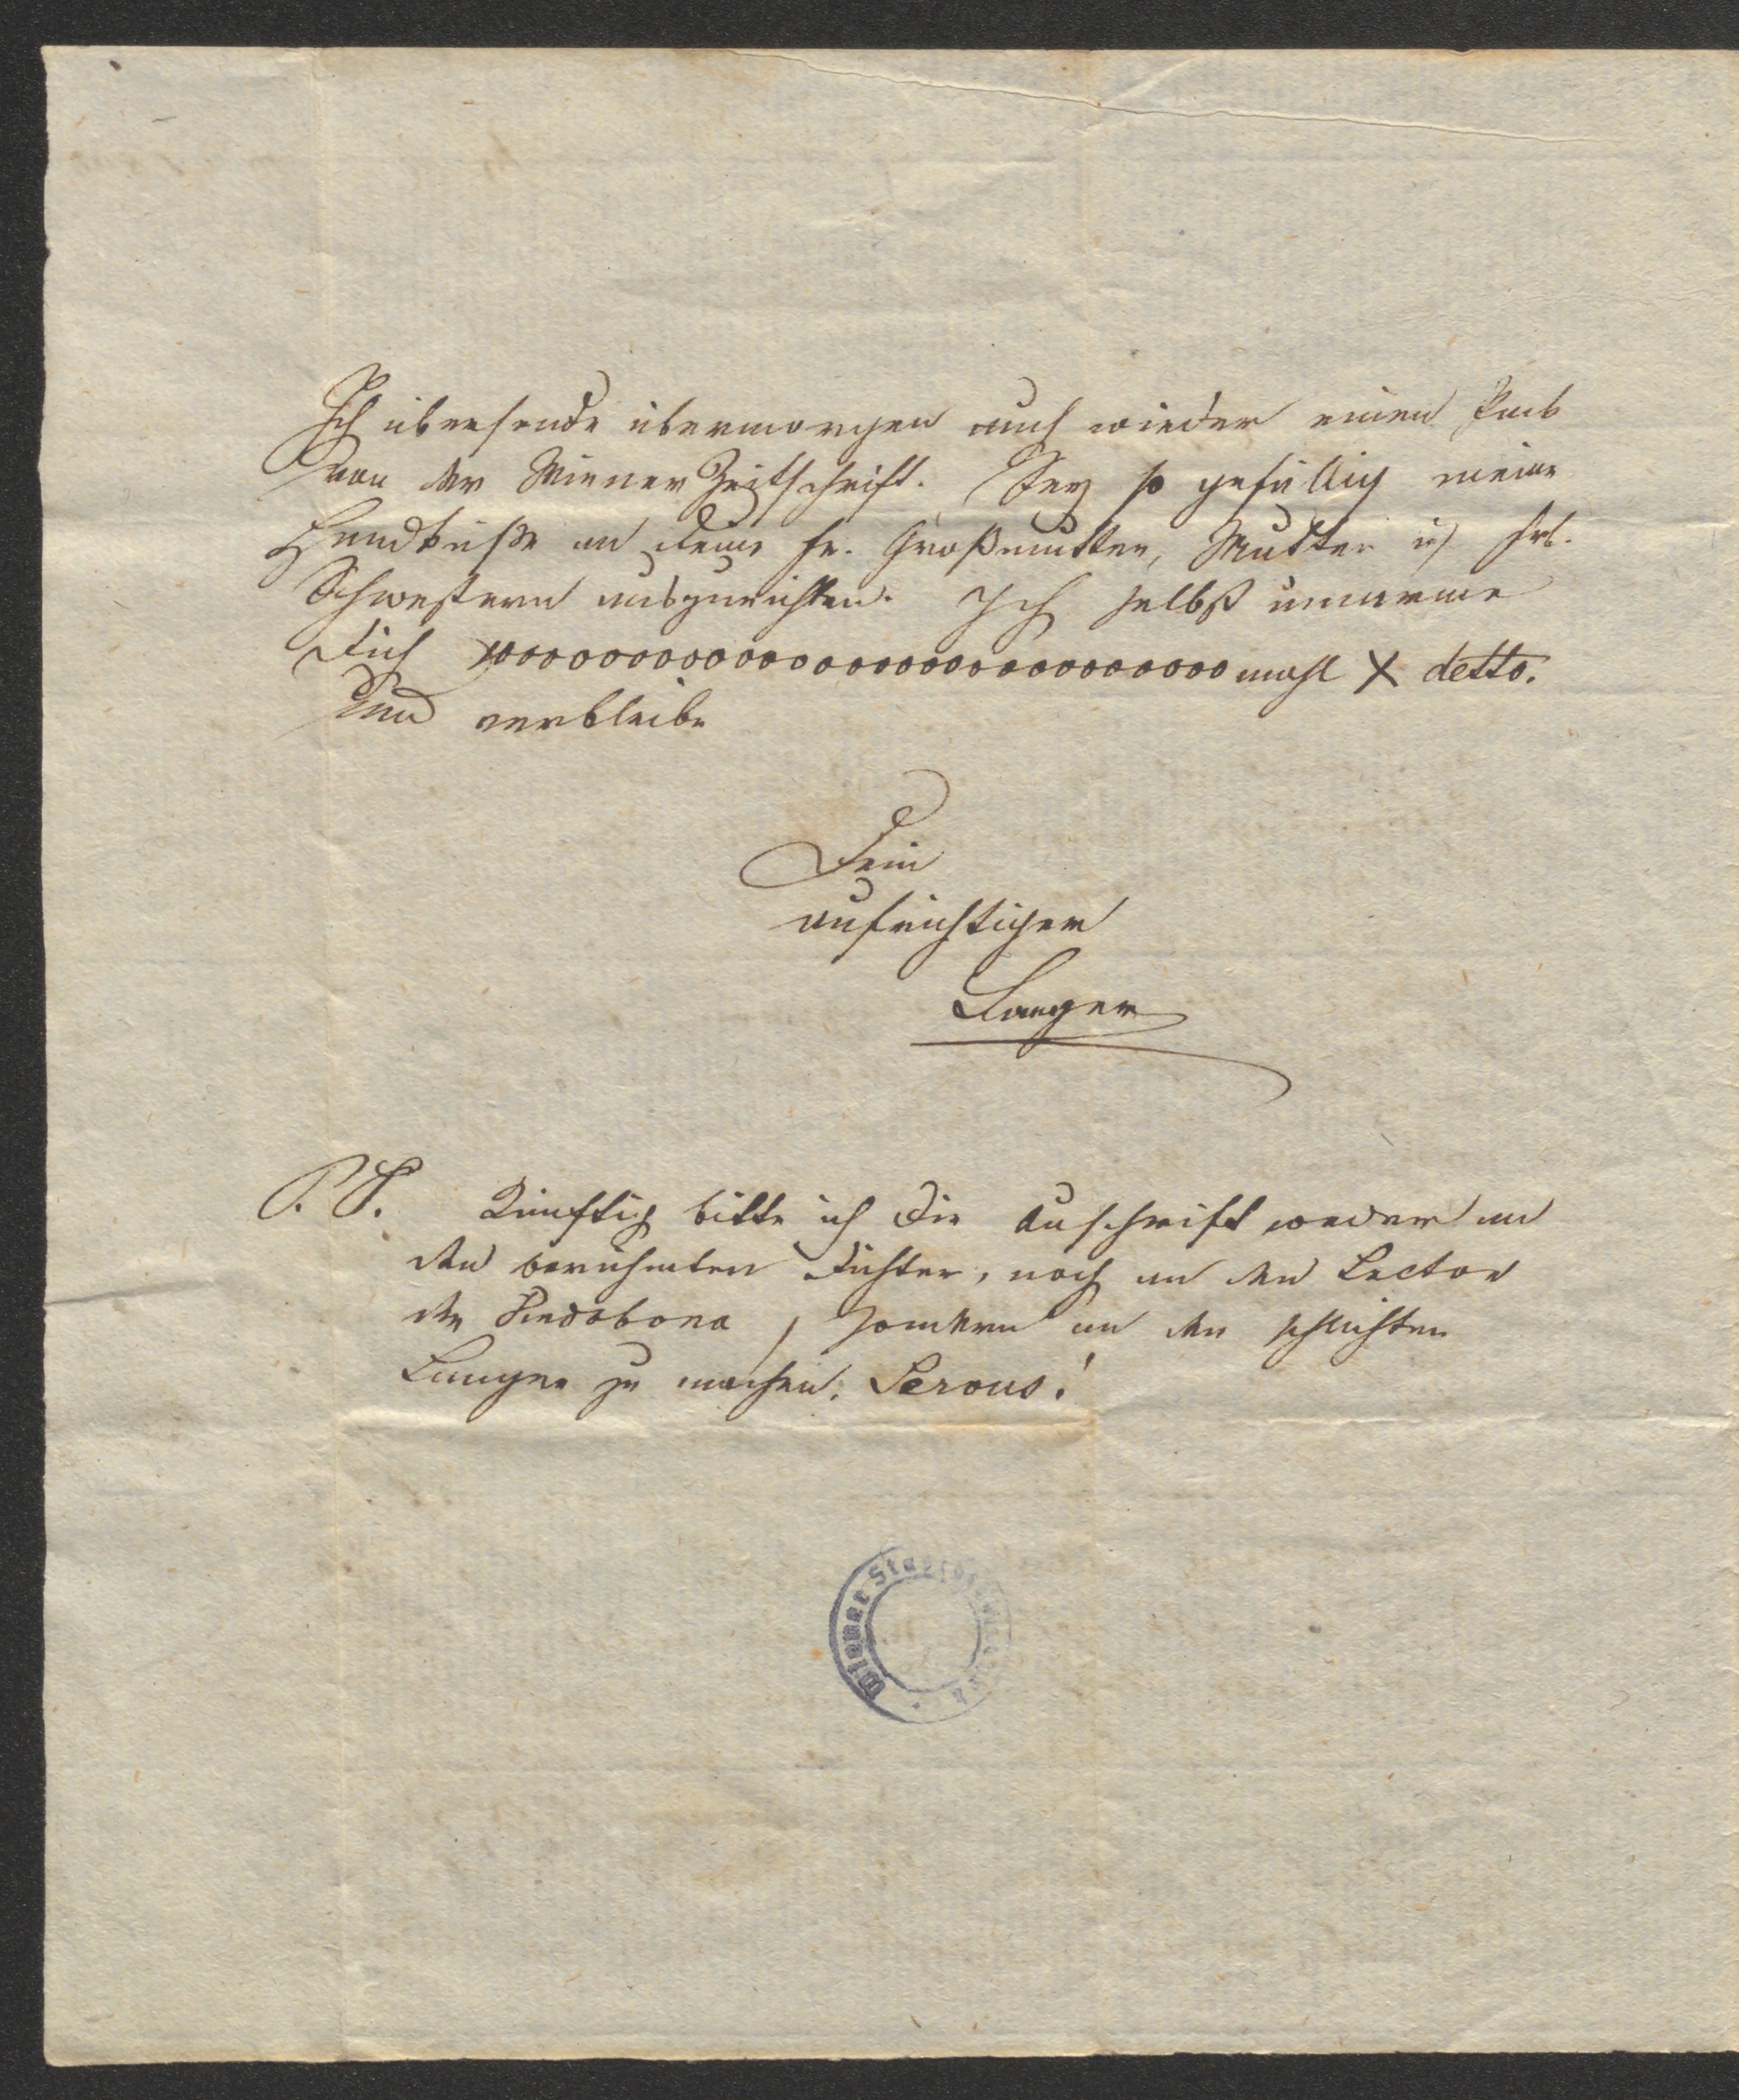 Ich übersende übermorgen auch wieder einen Pack
von der Wiener Zeitschrift. Sey so gefällig meine
Handküße an deine Fr. Großmutter, Mutter u Frl.
Schwestern auszurichten. Ich selbst umarme
dich 10000000000000000000000000000mahl X detto.
Und verbleibe
Dein
aufrichtiger
Langer
P. S. Künftig bitte ich die Aufschrift weder an
den berühmten Dichter, noch an den Lector
der Vindobona, sondern an den schlichten
Langer zu machen. Servus!
Wiener Stadtbibliothek